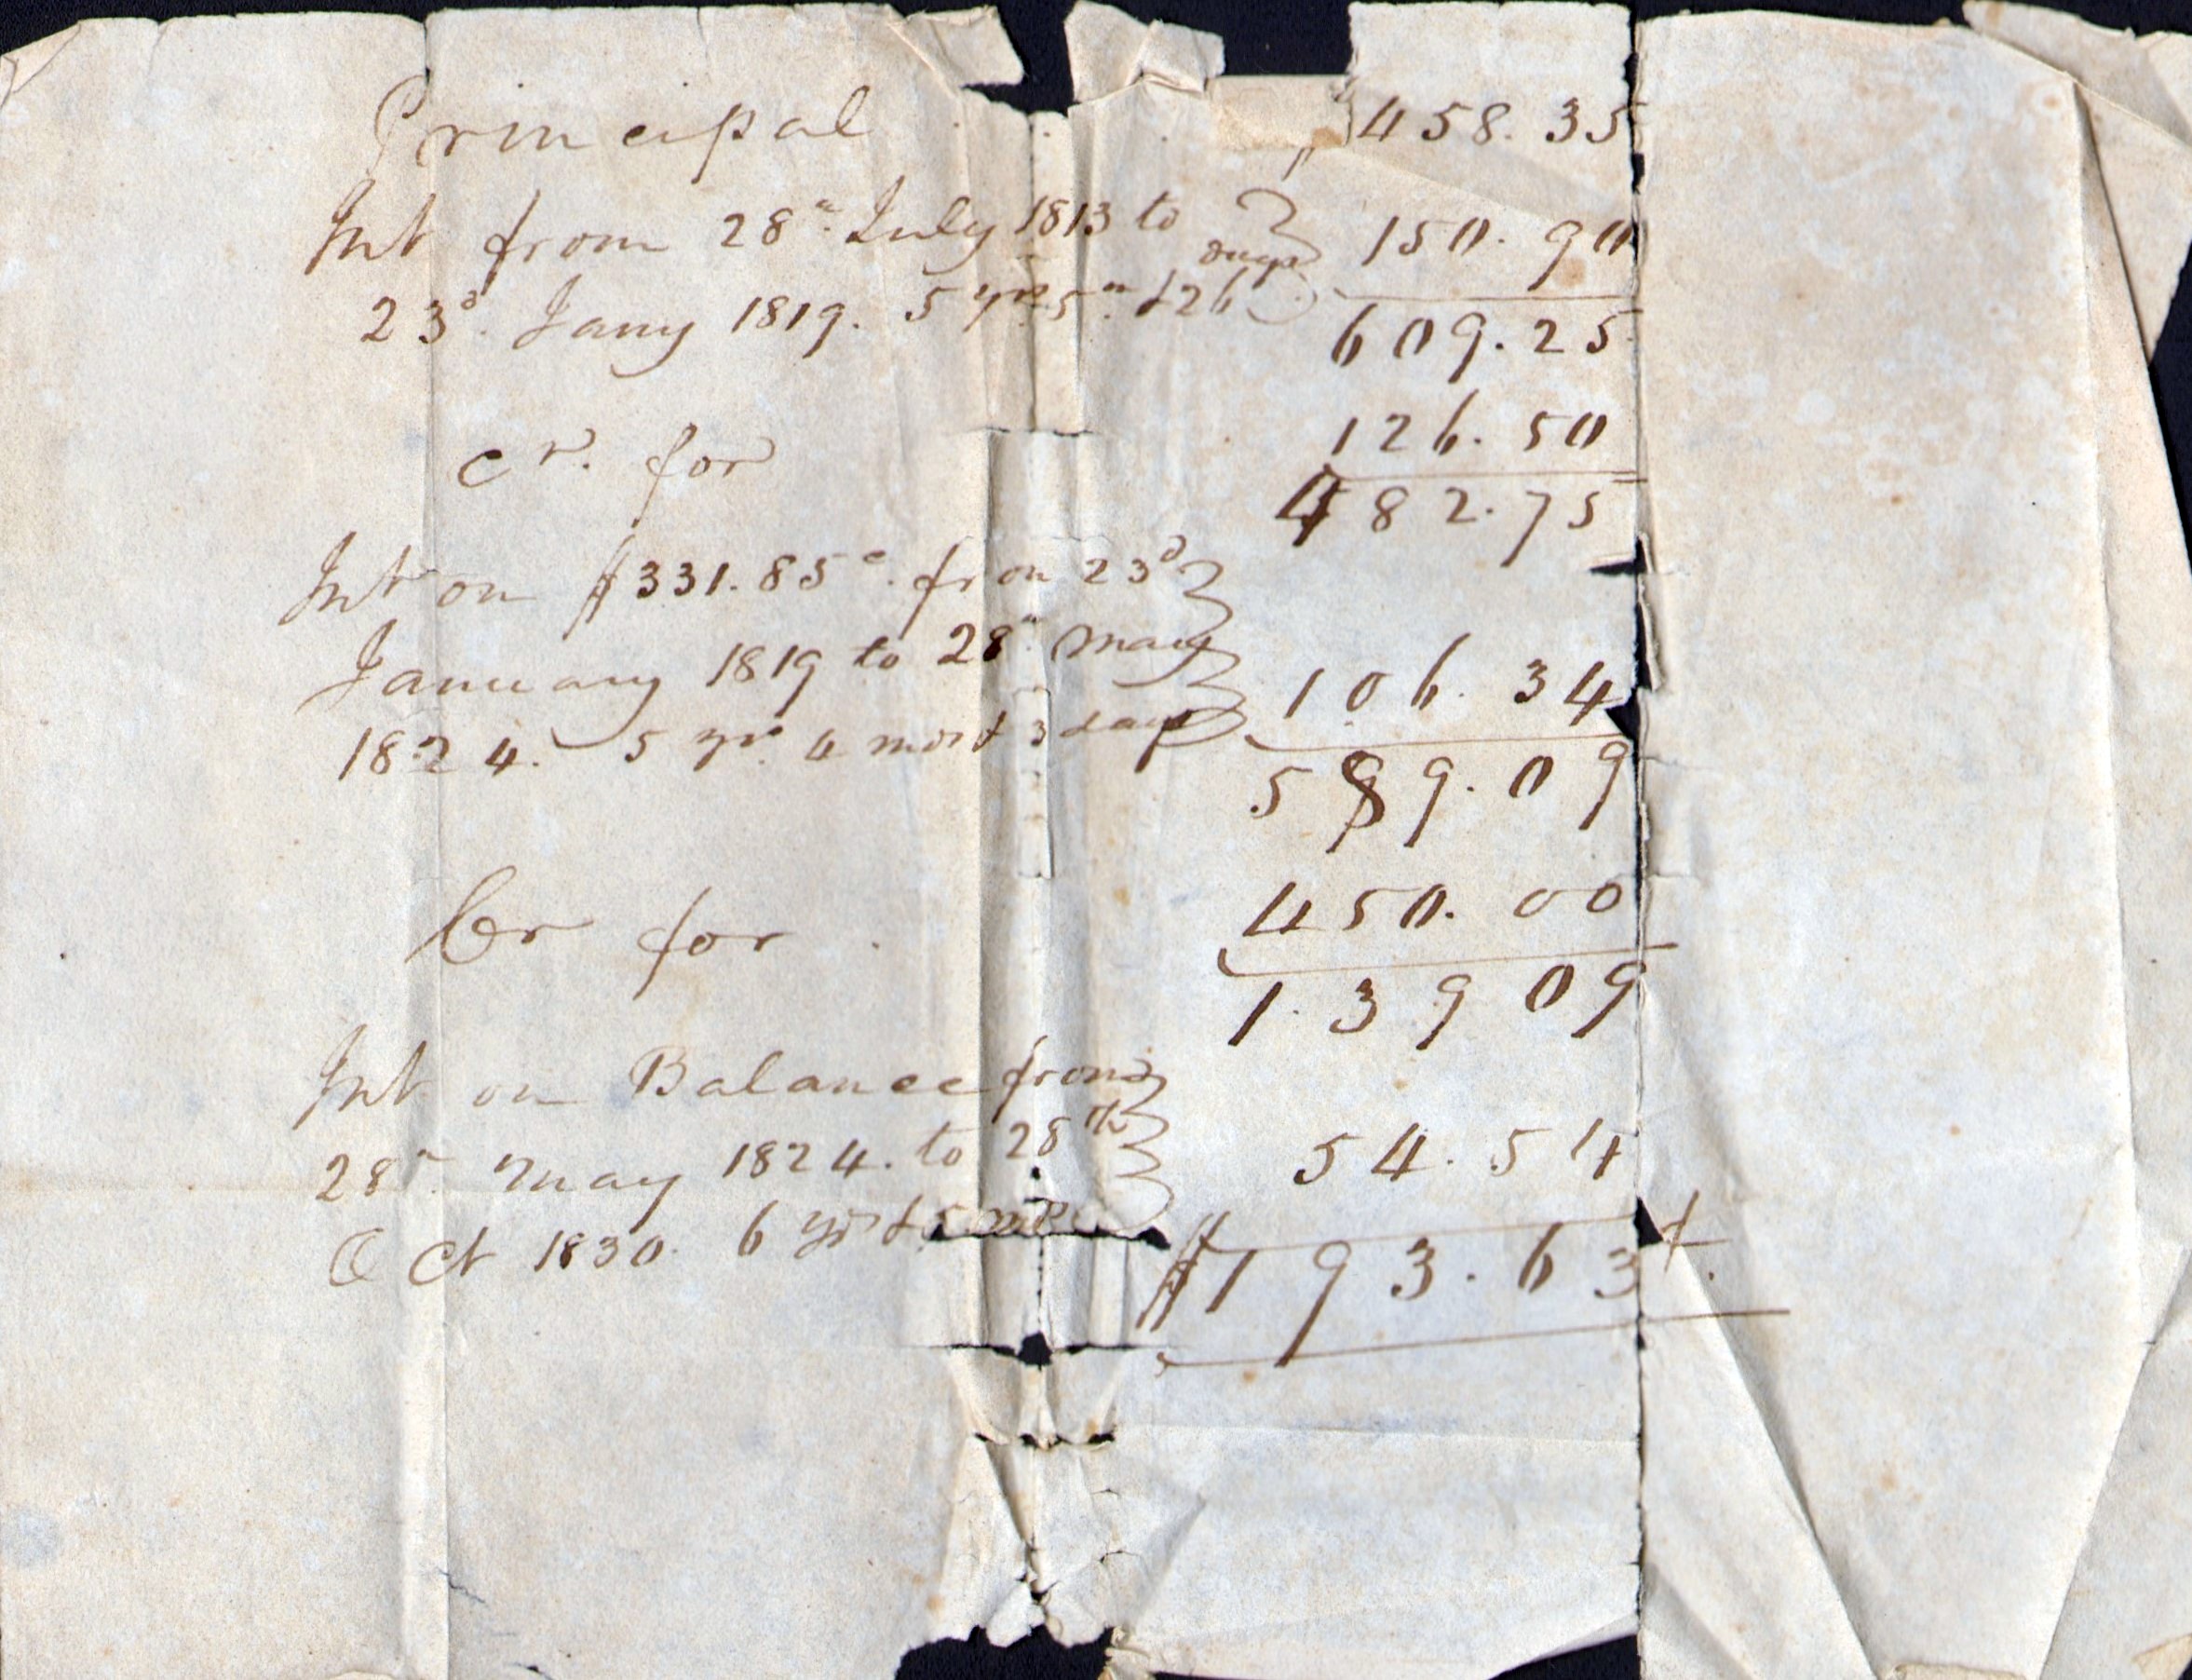 Principal 458.35
Int from 28th July 1813 to 150.90
23d. Jany 1819. 5 yrs 5m & 26 days
609.25
cr. for 126.50
482.75
Int on $331.85c. from 23d
January 1819 to 28th May
1824. 5 yrs 4 mos & 3 days 106.34
589.09
Cr for 450.00
139 09
Int on Balance from
28th May 1824. to 28th 54.54
Oct 1830. 6 yrs & 5 mos
$193.63